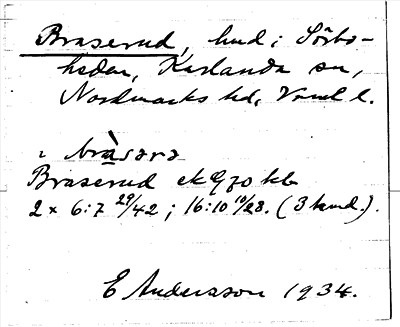 Braserud, hmd i Sörbo-
heden, Karlanda sn,
Nordmarks hd, Vrml l.
i bràsərə
Braserud ek 9 70 kbl
2 x 6:7 29/42; 16:10 10/28. (3 hmd.).
E Andersson 1934.